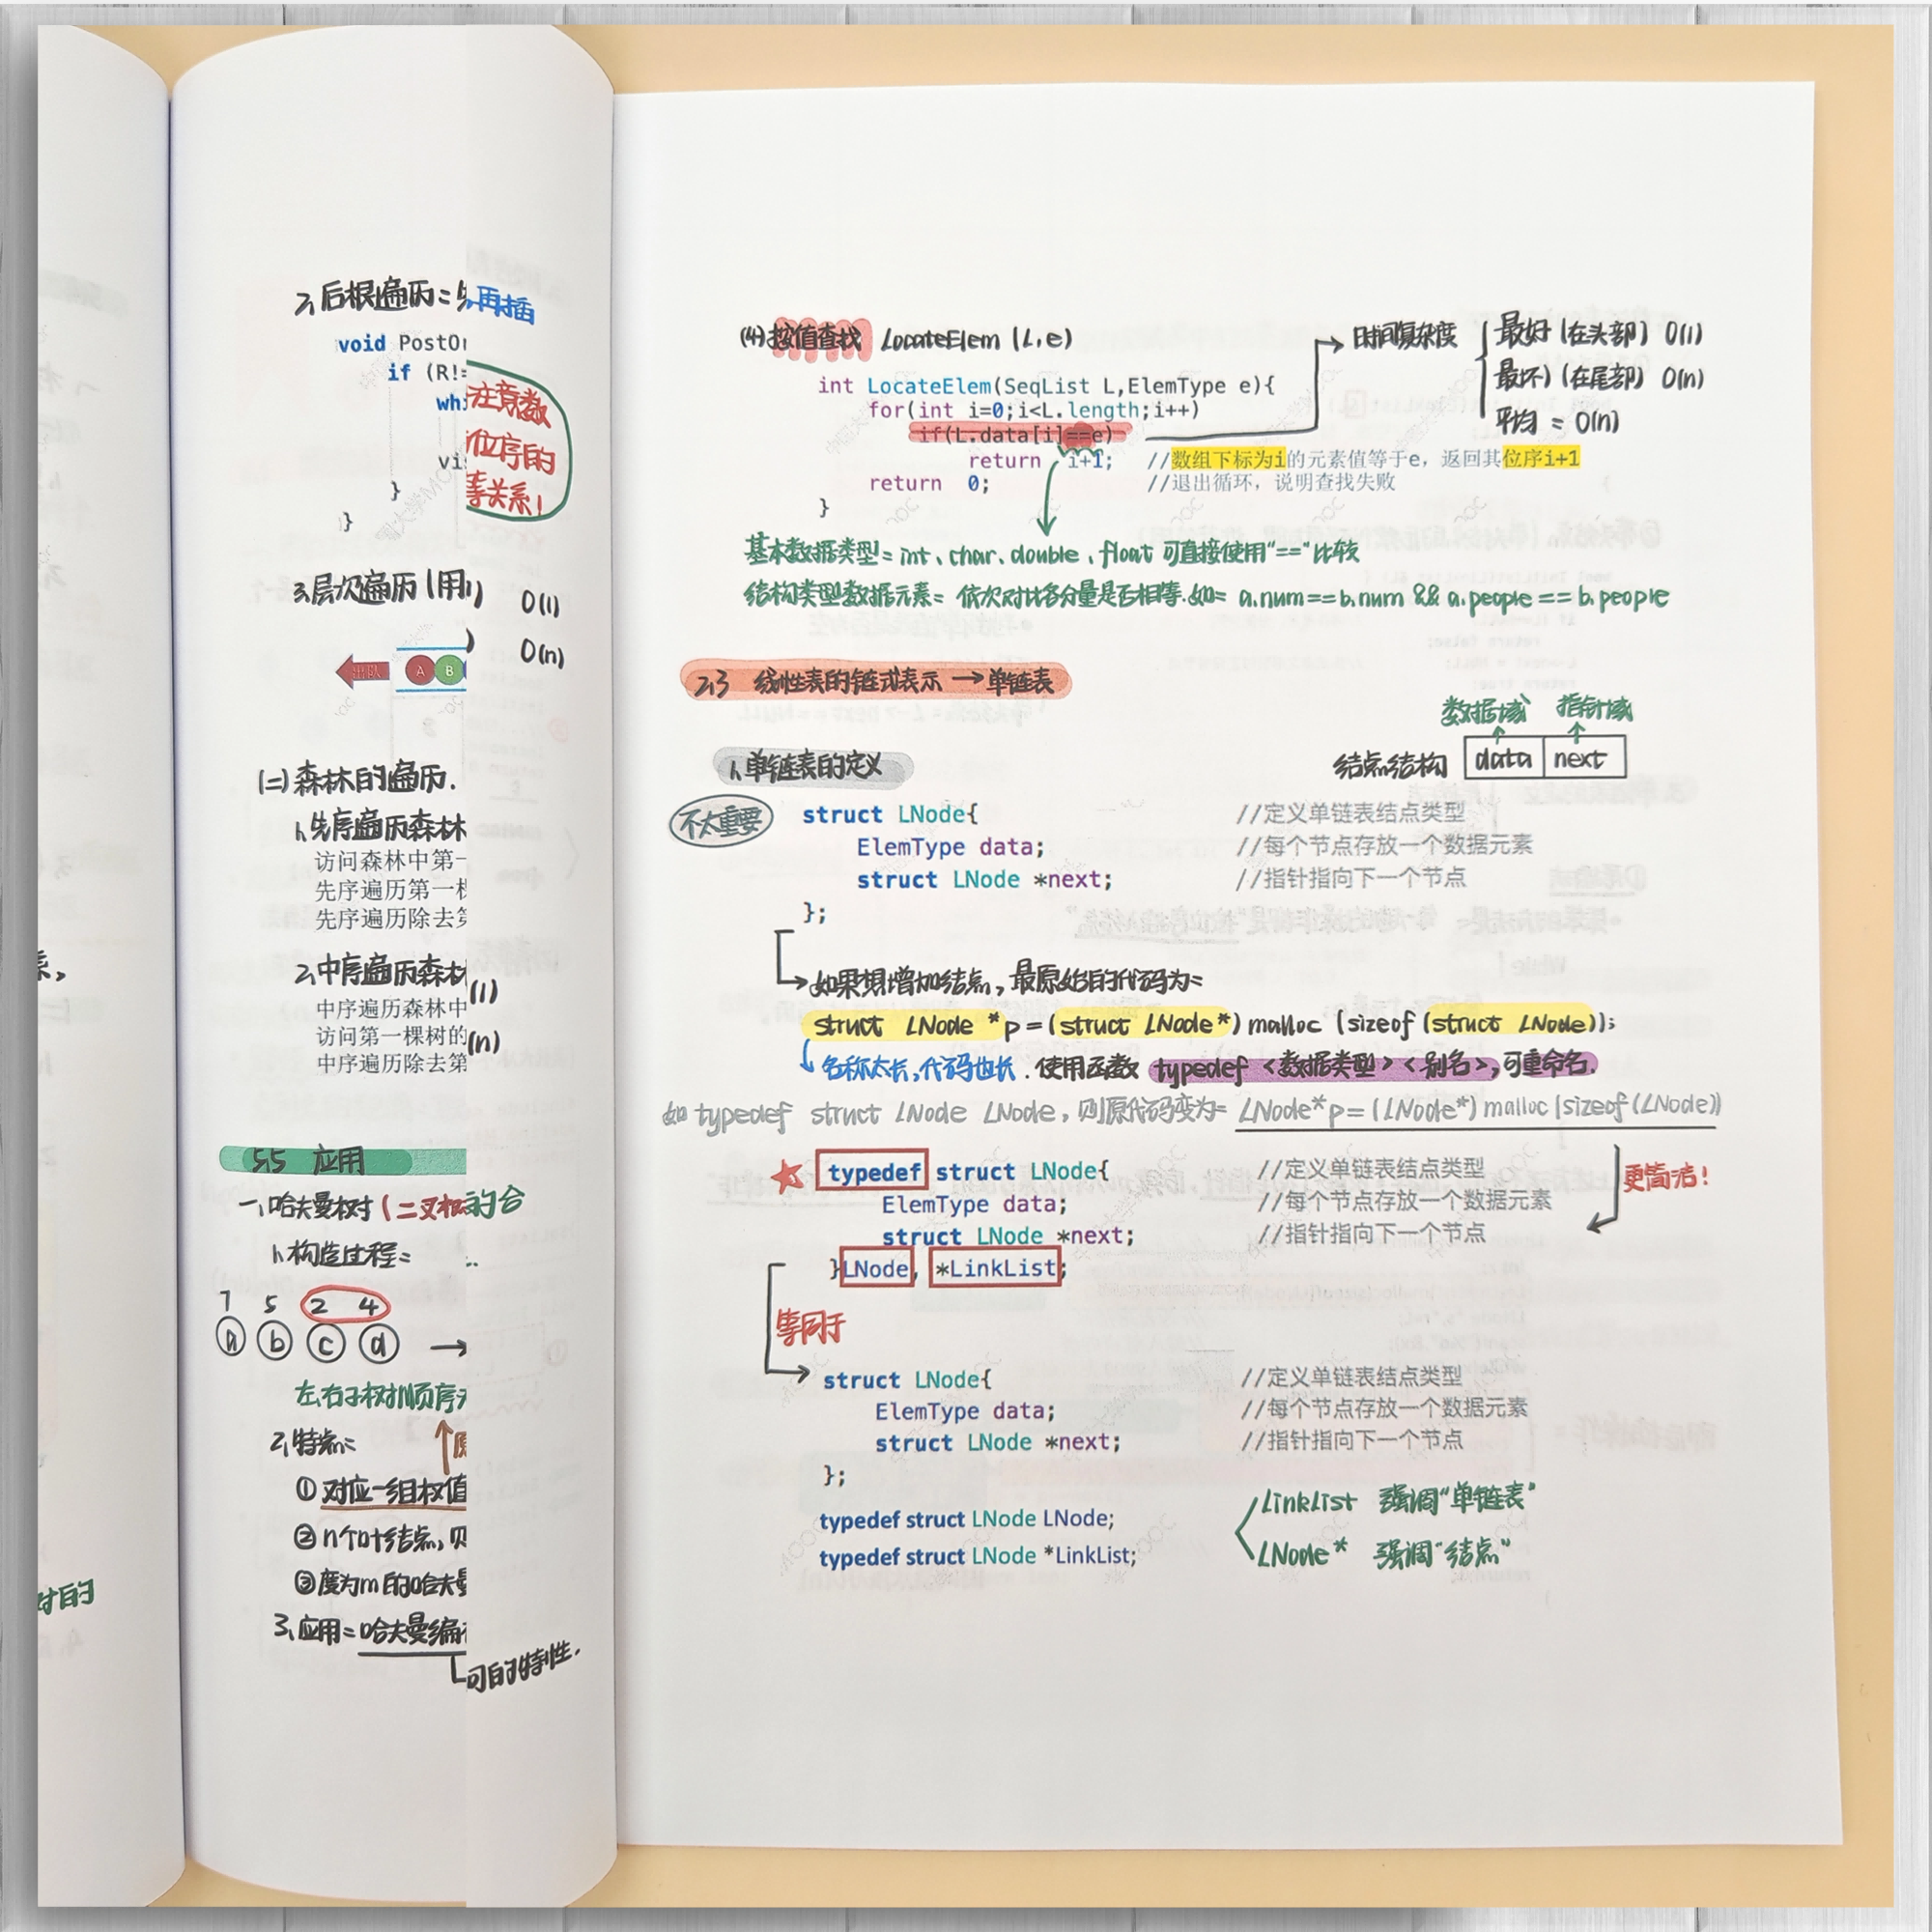 系,
对的
2、后根遍历:
再插
void PostOr
if (R!=
whi
注意数
位序的
关系!
vis
}
}
3.层次遍历(用
O(1)
O(n)
出队 A B
(二)森林的遍历.
1、先序遍历森林
访问森林中第一
先序遍历第一棵
先序遍历除去第
2、中序遍历森林
(1)
中序遍历森林中
访问第一棵树的
(n)
中序遍历除去第
5.5 应用
一、哈夫曼树(二叉树的合
1、构造过程:
7 5 2 4
a b c d →
左、右子树顺序
2、特点:
① 对应一组权值
② n个叶结点,则
③ 度为m的哈夫曼
3、应用:哈夫曼编
的特性.
(4)按值查找 LocateElem (L,e)
int LocateElem(SeqList L,ElemType e){
for(int i=0;i<L.length;i++)
if(L.data[i]==e)
return i+1; //数组下标为i的元素值等于e,返回其位序i+1
return 0; //退出循环,说明查找失败
}
→时间复杂度
最好(在头部) O(1)
最坏(在尾部) O(n)
平均: O(n)
基本数据类型:int、char、double、float 可直接使用"=="比较
结构类型数据元素:依次对比各分量是否相等.如: a.num==b.num && a.people == b.people
2.3 线性表的链式表示→单链表
数据域 指针域
1、单链表的定义
结点结构 data next
不太重要
struct LNode{ //定义单链表结点类型
ElemType data; //每个节点存放一个数据元素
struct LNode *next; //指针指向下一个节点
};
如果想增加结点,最原始的代码为:
struct LNode *p=(struct LNode*) malloc (sizeof(struct LNode));
名称太长,代码也长.使用函数 typedef <数据类型> <别名>,可重命名.
如 typedef struct LNode LNode,则原代码变为: LNode*p=(LNode*) malloc(sizeof(LNode))
★ typedef struct LNode{ //定义单链表结点类型
更简洁!
ElemType data; //每个节点存放一个数据元素
struct LNode *next; //指针指向下一个节点
}LNode, *LinkList;
等同于
struct LNode{ //定义单链表结点类型
ElemType data; //每个节点存放一个数据元素
struct LNode *next; //指针指向下一个节点
};
typedef struct LNode LNode;
typedef struct LNode *LinkList;
LinkList 强调"单链表"
LNode* 强调"结点"